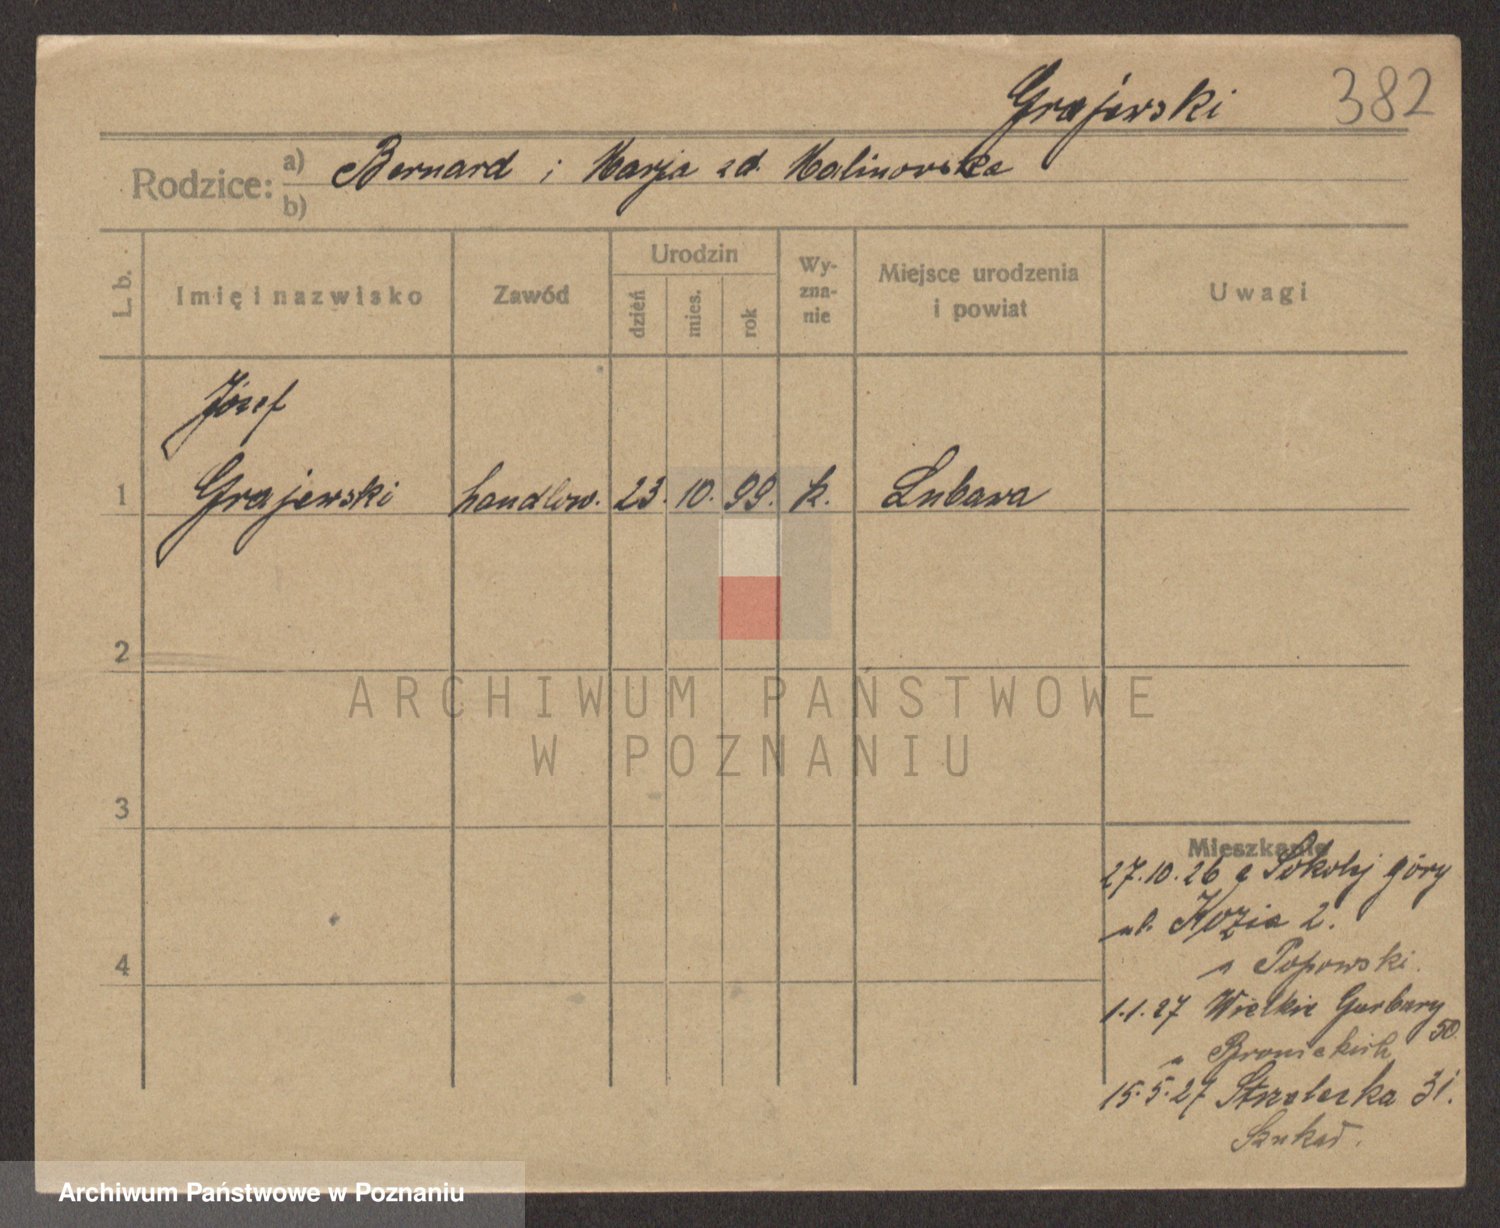 Grajewski 382
Rodzice: a) b) Bernard i Marja zd. Malinowska
L. b.
Imię i nazwisko
Zawód
Urodzin
dzień
mies.
rok
Wy-
zna-
nie
Miejsce urodzenia
i powiat
Uwagi
Józef
1 Grajewski handlow. 23. 10. 99. k. Lubawa
2
ARCHIWUM PAŃSTWOWE
W POZNANIU
3
4
Mieszkanie
27.10.26 z Sokolej góry
ul. Kozia 2.
u Popowski.
1.1.27 Wielkie Garbary
50
u Bronieckich
15.5.27 Strzelecka 31.
Archiwum Państwowe w Poznaniu